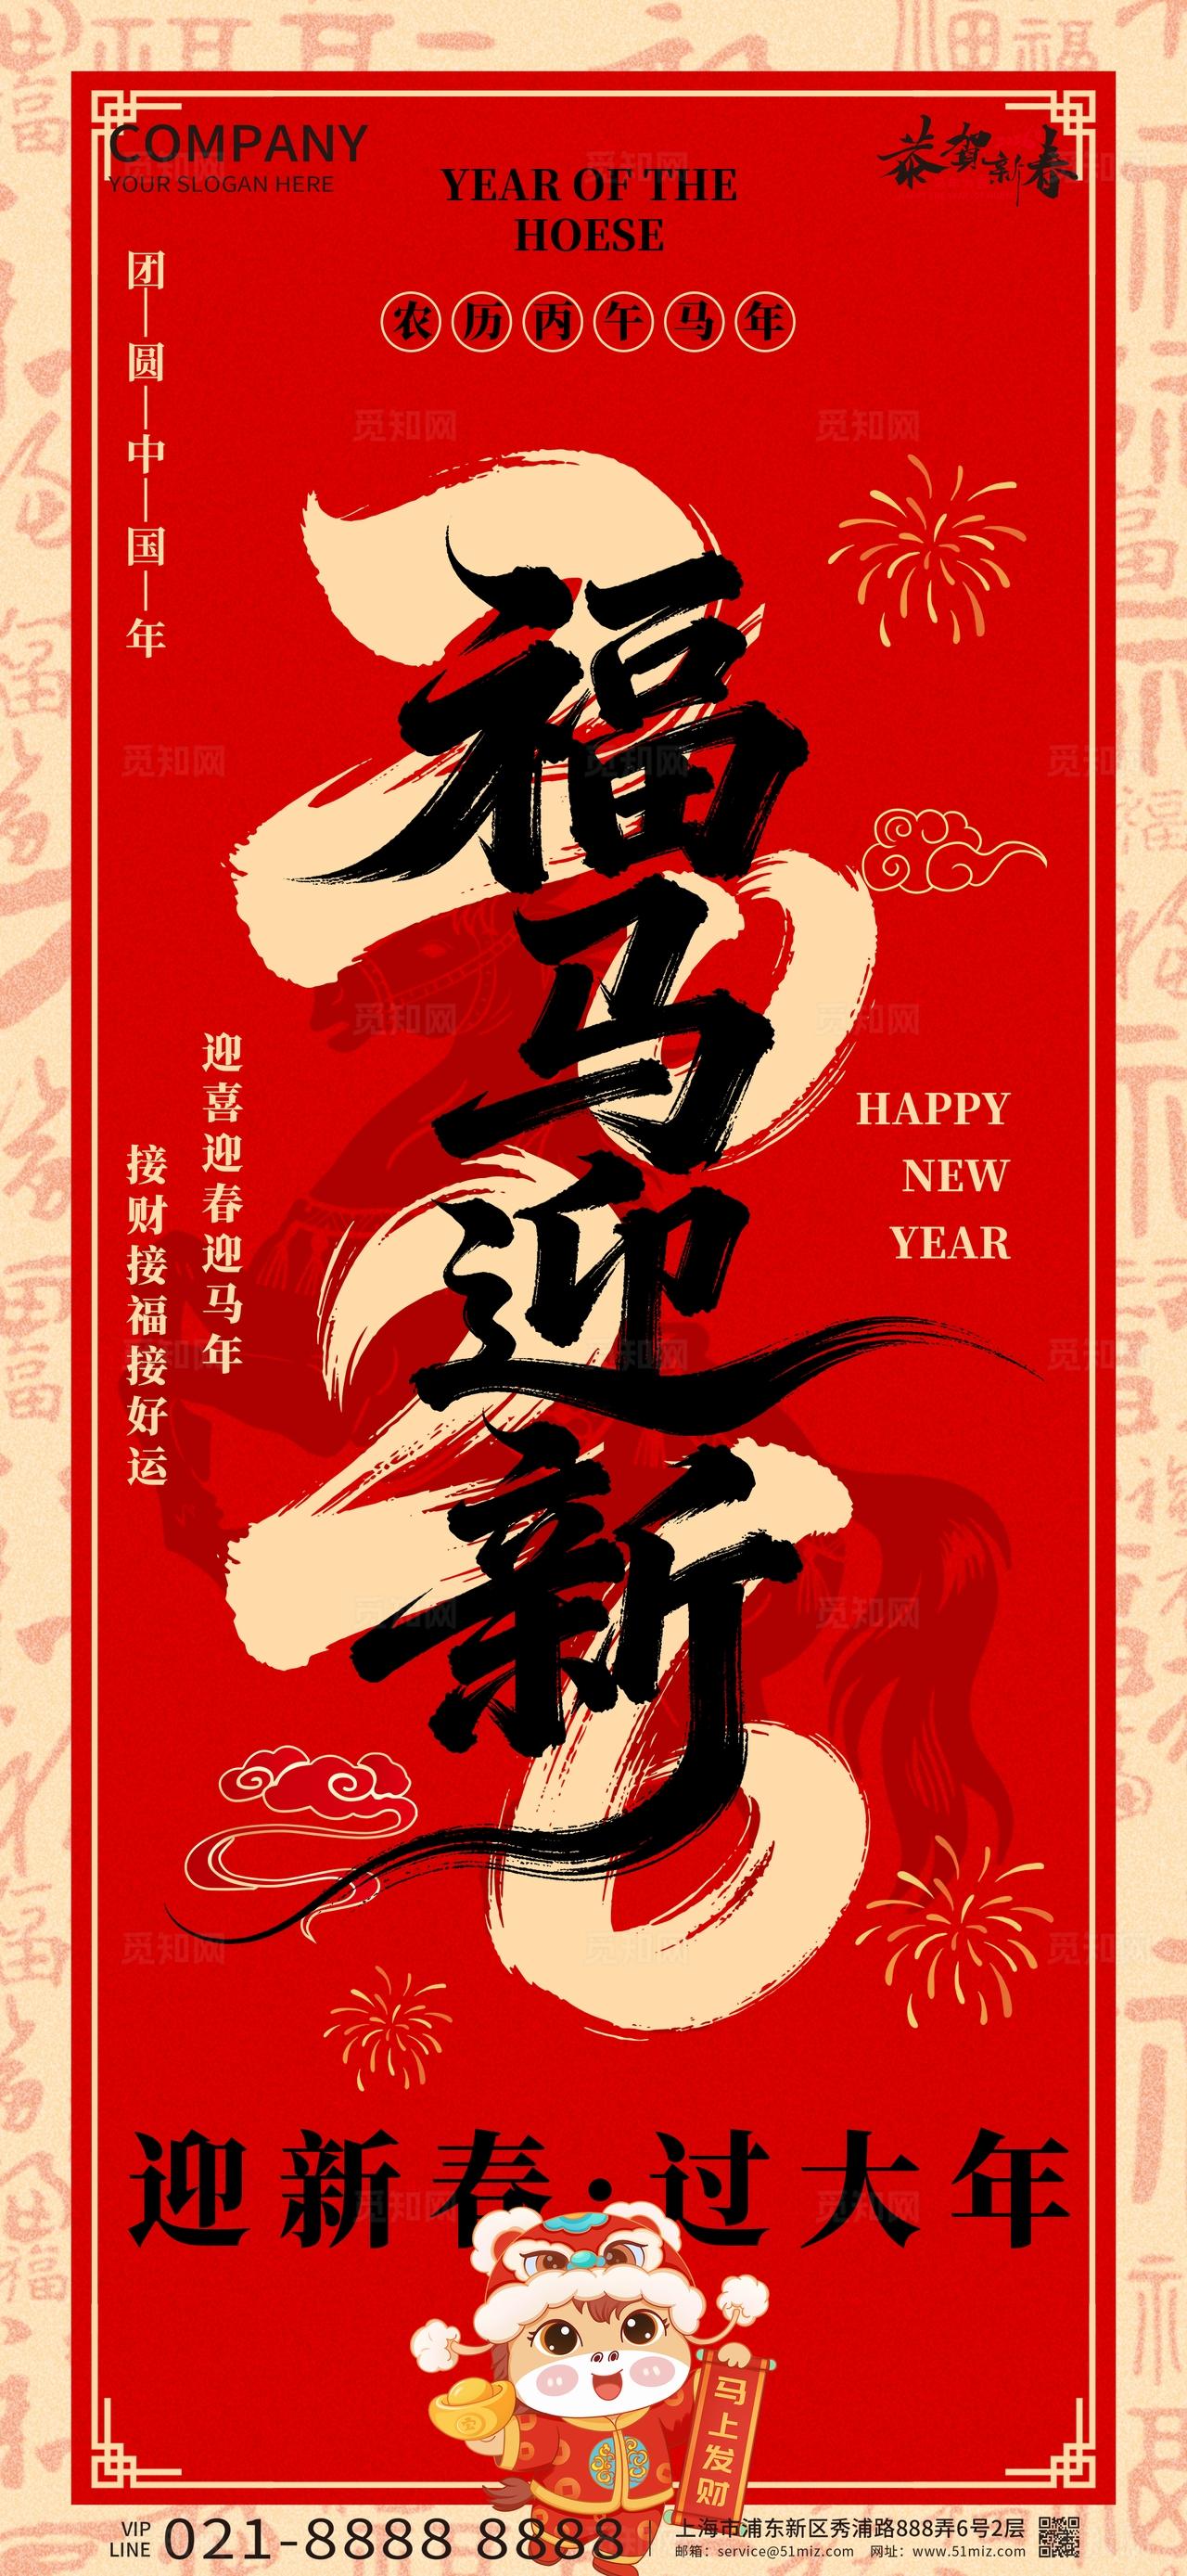 COMPANY
YOUR SLOGAN HERE
恭贺新春
YEAR OF THE
HOESE
农历丙午马年
团圆中国年
福马迎新
迎喜迎春迎马年
接财接福接好运
HAPPY
NEW
YEAR
迎新春·过大年
马上发财
VIP
LINE
021-8888 8888
上海市浦东新区秀浦路888弄6号2层
邮箱：service@51miz.com 网址：www.51miz.com
觅知网